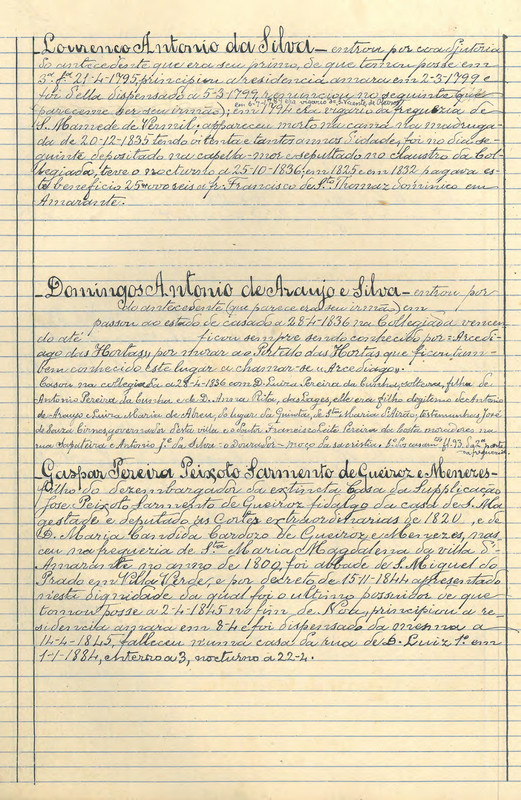 Lourenco Antonio da Silva - entrou por coadjutoria
do antecedente que era seu primo, de que tomou posse em
3ª fª 21-4-1795, principiou a residencia amara em 2-3-1799 e
foi d'ella dispensado a 5-3-1799, renunciou no seguinte (que
em 6-7-1789 era vigario de S. Vicente de
parece me ser seu irmão); em 1794 era vigario da freguezia de
S. Mamede de Vermil; appareceu morto na cama na madruga-
da de 20-12-1835 tendo oitenta e tantos annos d'idade, foi no dia se-
guinte depositado na capella-mor e sepultado no claustro da Col-
legiada, teve o nocturno a 25-10-1836; em 1825 e em 1832 pagava es-
te beneficio 25 reis a fr. Francisco de S. Thomaz dominico em
Amarante.
Domingos Antonio de Araujo e Silva - entrou por
do antecedente (que parece era seu irmão) em
passou ao estado de casado a 28-4-1836 na Collegiada vencen-
do até ficou sempre sendo conhecido por "Arcedi-
ago das Hortas", por morar ao Postigo das Hortas que ficou tam-
bem conhecido este lugar a chamar-se "o Arcediago".
Casou na collegiada a 28-4-1836 com D. Luiza Pereira da Cunha, solteira, filha de
Antonio Pereira da Cunha e de D. Anna Rita, das Lages, elle era filho legitimo de Antonio
de Araujo e Luiza Maria de Abreu, do lugar da Quintã, de Stª Maria testemunhas José
de Souza governador desta villa e o Padre Francisco Leite Pereira da Costa moradores na
rua Sapateira e Antonio Jé da Silva - o Dourador - moço da sacristia. fl. 93 da 2ª parte
Gaspar Pereira Peixoto Sarmento de Queiroz e Menezes -
filho do dezembargador da extincta Casa da Supplicação
José Peixoto Sarmento de Queiroz fidalgo da casa de S. Ma-
gestade e deputado ás Cortes extraordinarias de 1820, e de
D. Maria Candida Cardozo de Queiroz e Menezes, nas-
ceu na freguezia de Stª Maria Magdalena da villa d'
Amarante no anno de 1800, foi abbade de S. Miguel do
Prado em Villa Verde, e por decreto de 15-11-1844 apresentado
n'esta dignidade da qual foi o ultimo possuidor de que
tomou posse a 2-4-1845 no fim de Noa, principiou a re-
sidencia amara em 8-4 e foi dispensado da mesma a
14-4-1845, falleceu n'uma casa da rua de D. Luiz 1º em
1-1-1884, enterro a 3, nocturno a 22-4.